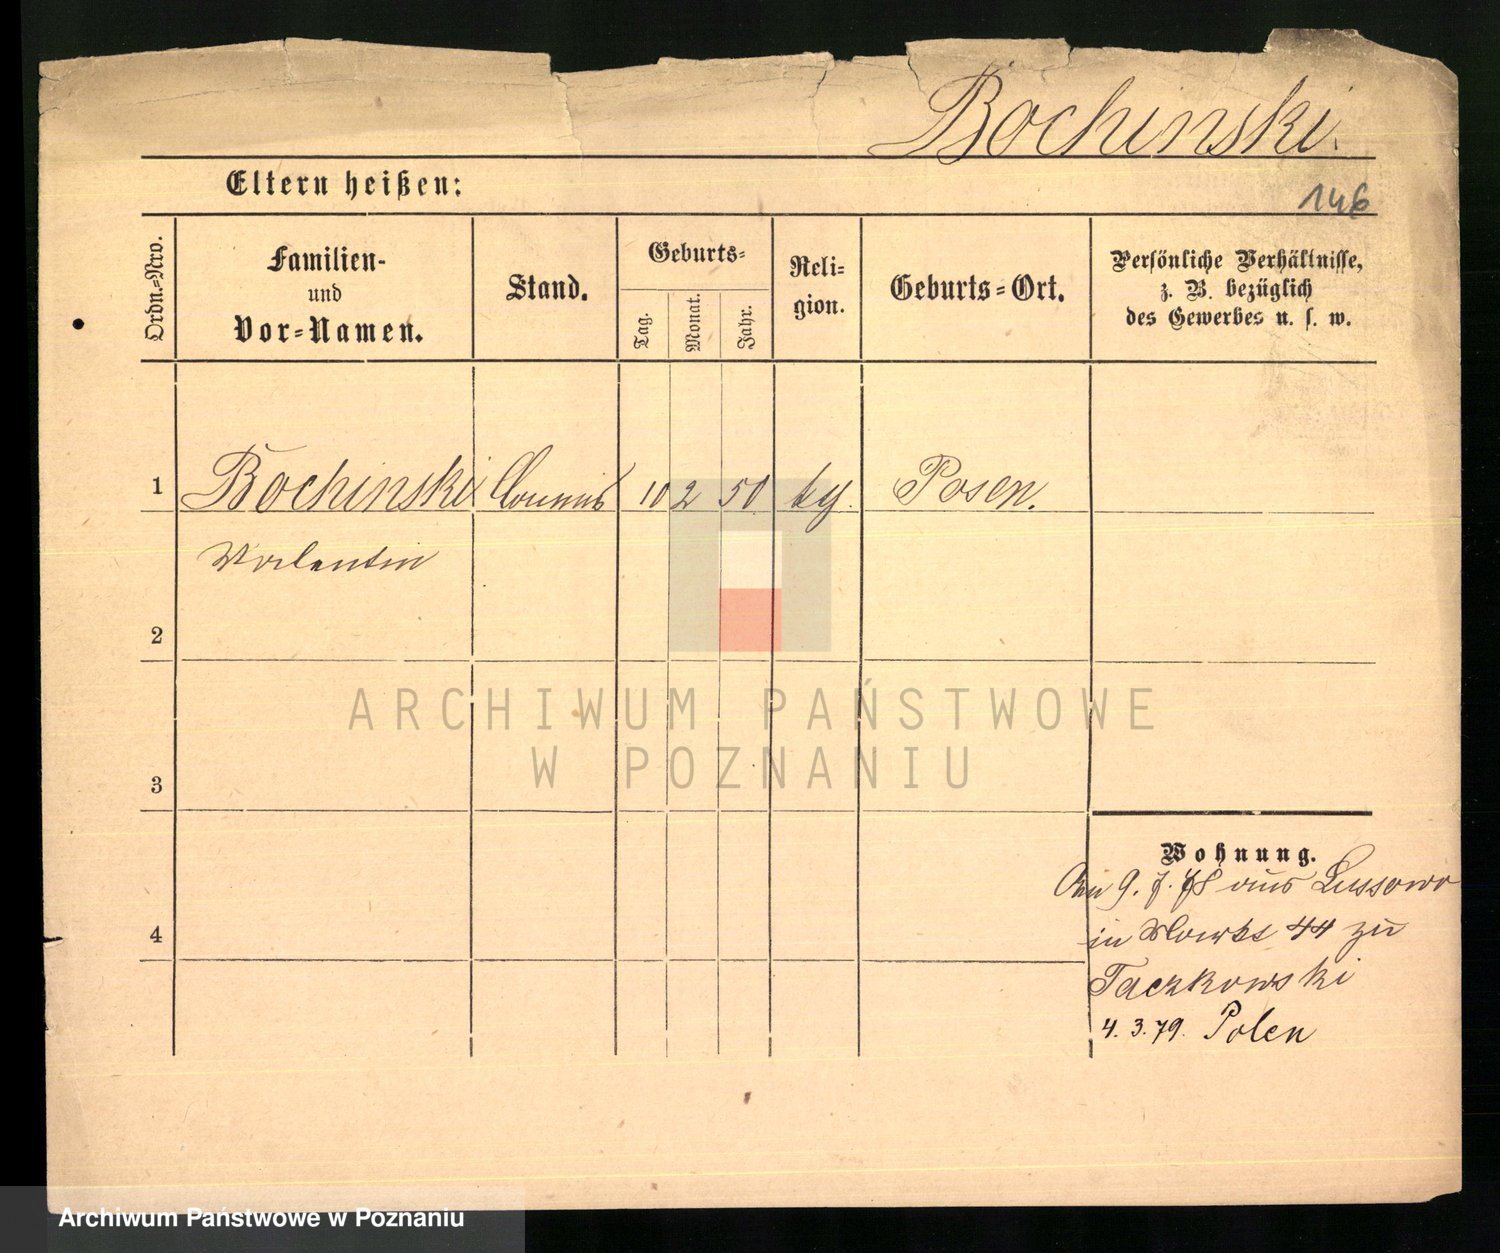 Bochinski.
Eltern heißen:
146
Ordn.-Nro.
Familien-
und
Vor-Namen.
Stand.
Geburts-
Tag.
Monat.
Jahr.
Reli-
gion.
Geburts-Ort.
Persönliche Verhältnisse,
z. B. bezüglich
des Gewerbes u. s. w.
1 Bochinski Commis 10 2 50 Posen.
Valentin
2
3
4
Wohnung.
9. 7. 78 aus Lussowo
in Markt 44 zu
Taczkowski
4. 3. 79. Polen
ARCHIWUM PAŃSTWOWE
W POZNANIU
Archiwum Państwowe w Poznaniu